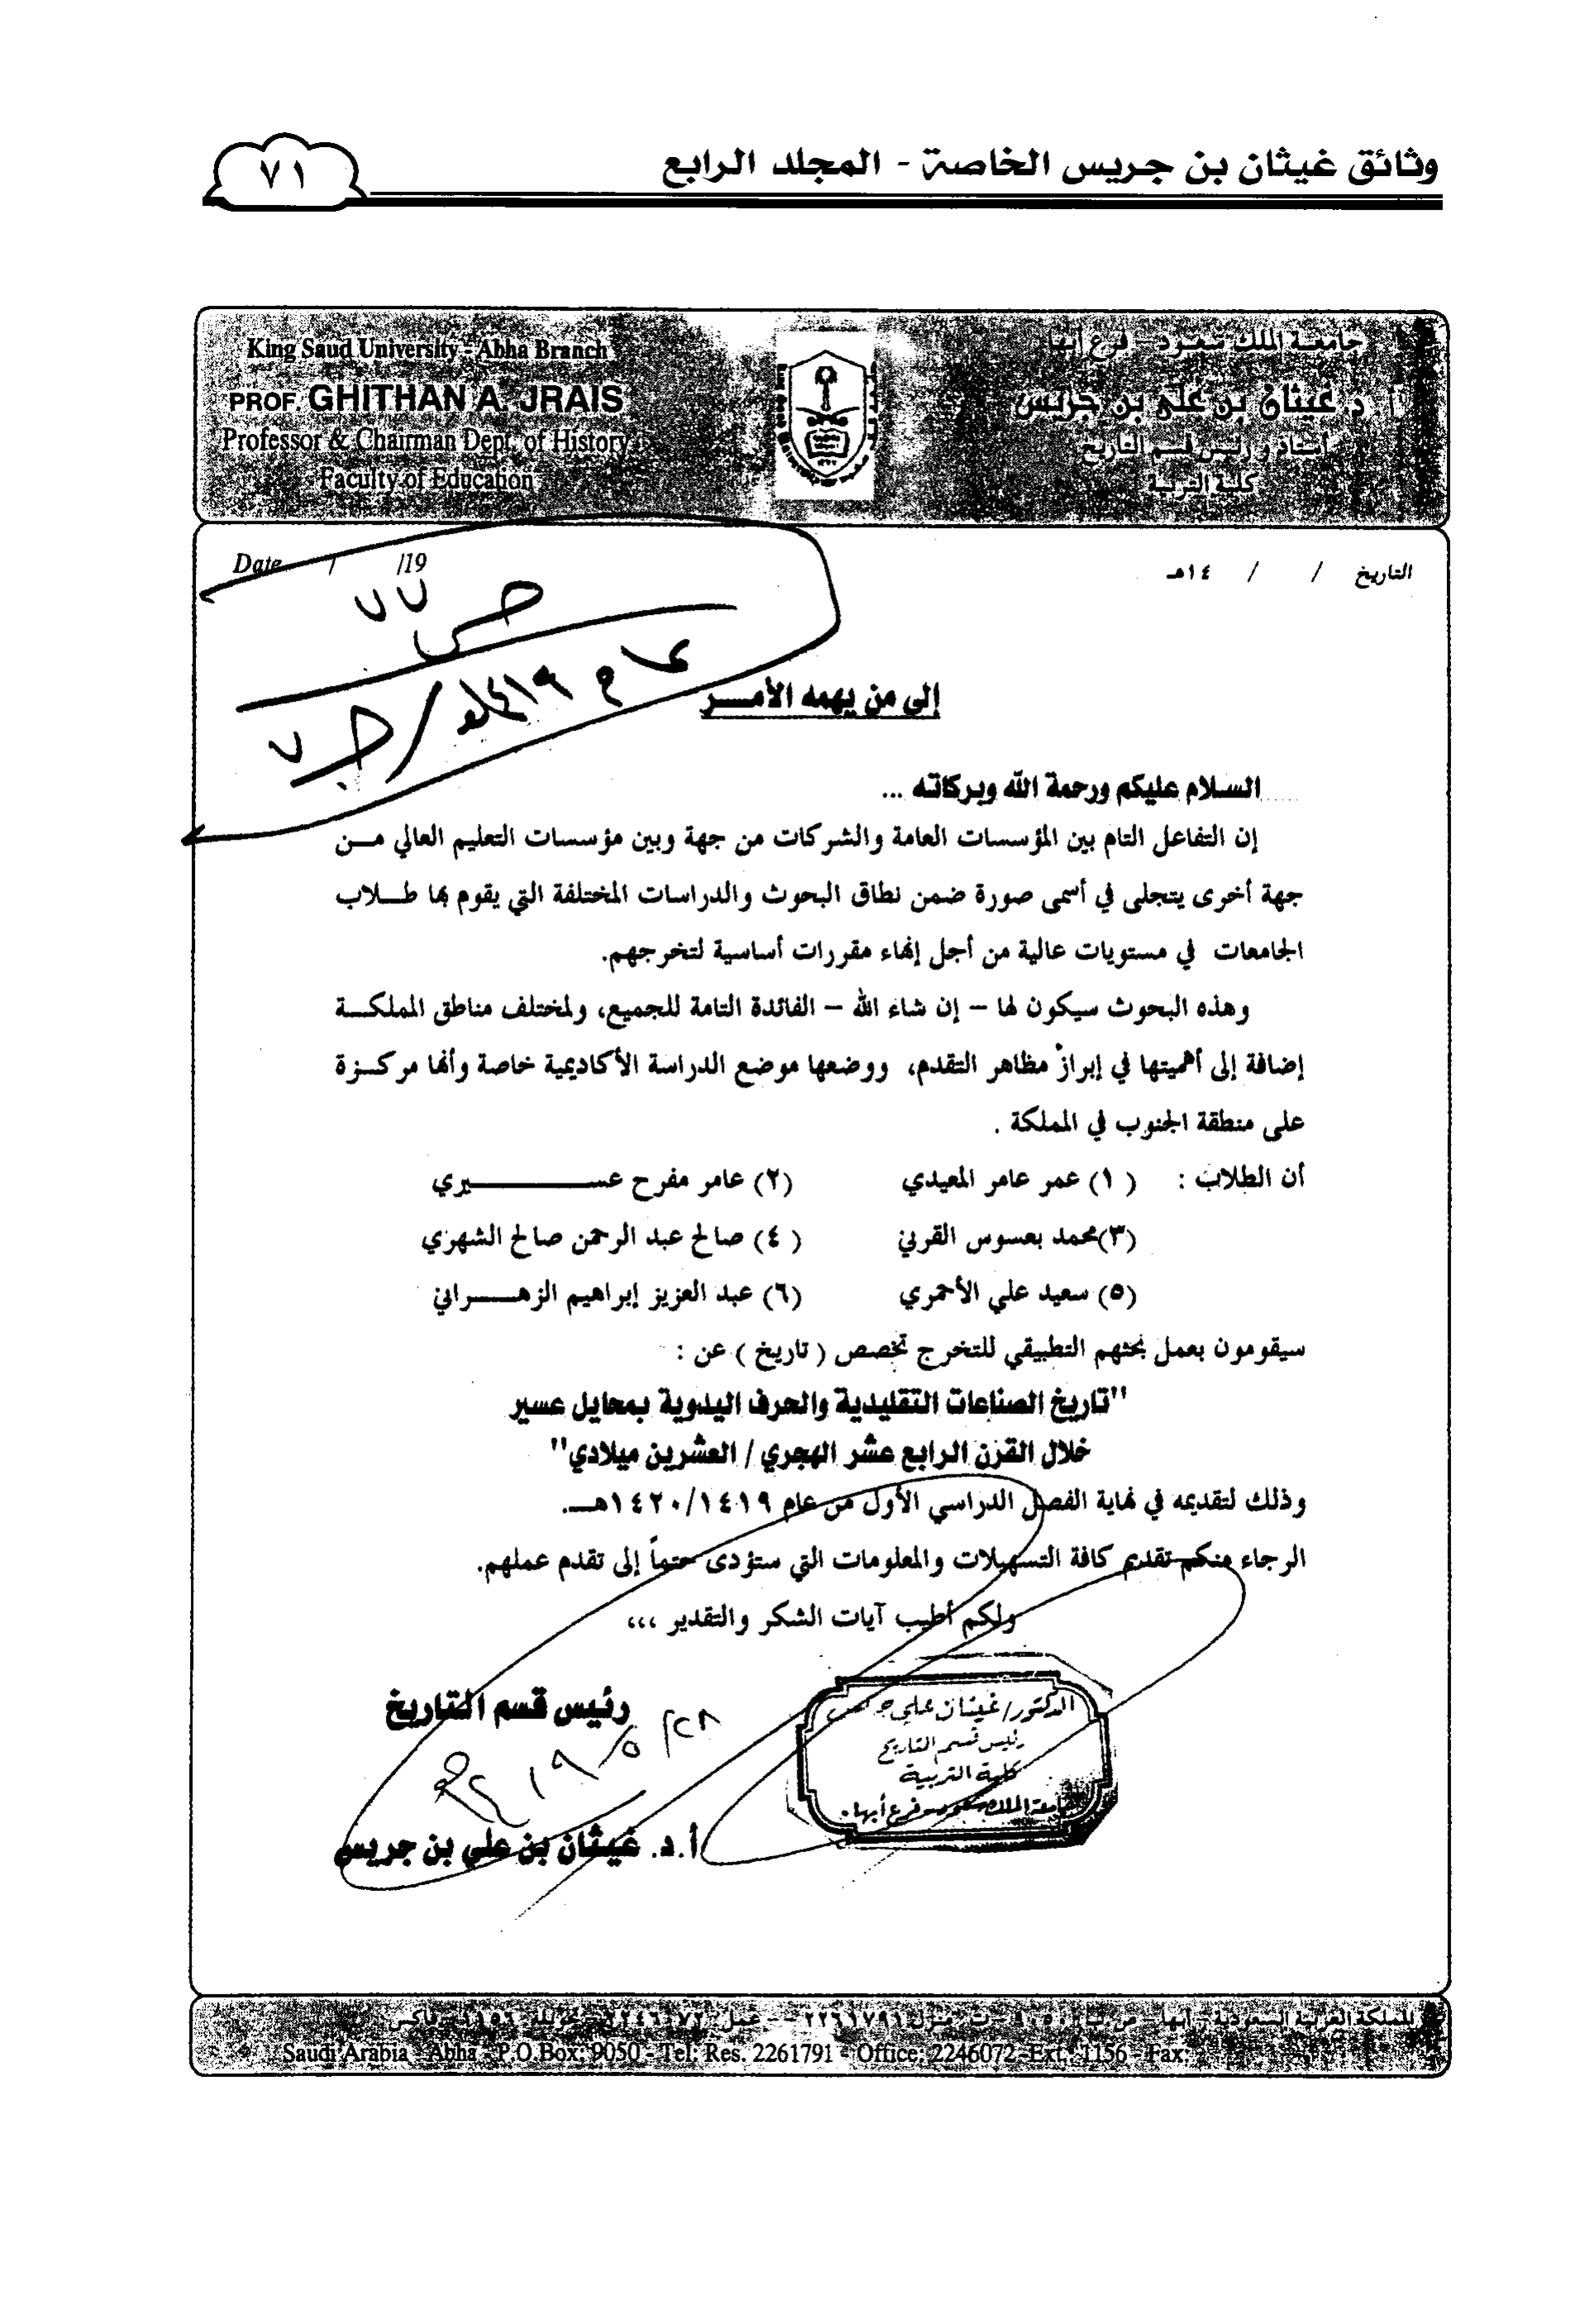 وثائق غيثان بن جريس الخاصة - المجلد الرابع
٧١
King Saud University - Abha Branch
PROF. GHITHAN A. JRAIS
Professor & Chairman Dept. of History
Faculty of Education
جامعة الملك سعود - فرع أبها
أ. د. غيثان بن علي بن جريس
أستاذ و رئيس قسم التاريخ
كلية التربية
Date / /19
التاريخ / / ١٤هـ
ص ٧٧
عام ١٤١٩هـ / جـ ٧
إلى من يهمه الأمـــر
السلام عليكم ورحمة الله وبركاته ...
إن التفاعل التام بين المؤسسات العامة والشركات من جهة وبين مؤسسات التعليم العالي مـن
جهة أخرى يتجلى في أسمى صورة ضمن نطاق البحوث والدراسات المختلفة التي يقوم بها طـلاب
الجامعات في مستويات عالية من أجل إنهاء مقررات أساسية لتخرجهم.
وهذه البحوث سيكون لها – إن شاء الله – الفائدة التامة للجميع، ولمختلف مناطق المملكـة
إضافة إلى أهميتها في إبراز مظاهر التقدم، ووضعها موضع الدراسة الأكاديمية خاصة وأنها مركـزة
على منطقة الجنوب في المملكة .
أن الطلاب : (١) عمر عامر المعيدي (٢) عامر مفرح عســـــيري
(٣) محمد بعسوس القرني (٤) صالح عبد الرحمن صالح الشهري
(٥) سعيد علي الأحمري (٦) عبد العزيز إبراهيم الزهـــراني
سيقومون بعمل بحثهم التطبيقي للتخرج تخصص ( تاريخ ) عن :
"تاريخ الصناعات التقليدية والحرف اليدوية بمحايل عسير
خلال القرن الرابع عشر الهجري / العشرين ميلادي"
وذلك لتقديمه في نهاية الفصل الدراسي الأول من عام ١٤٢٠/١٤١٩هـ.
الرجاء منكم تقديم كافة التسهيلات والمعلومات التي ستؤدى حتماً إلى تقدم عملهم.
ولكم أطيب آيات الشكر والتقدير ،،،
رئيس قسم التاريخ
٢٨/٥/١٤١٩هـ
أ.د. غيثان بن علي بن جريس
الدكتور/ غيثان علي
رئيس قسم التاريخ
كلية التربية
جامعة الملك سعود فرع أبها
المملكة العربية السعودية - أبها - ص ب : ٩٠٥٠ - ت : منزل ٢٢٦١٧٩١ - عمل : ٢٢٤٦٠٧٢ - تحويلة ١١٥٦ - فاكس
Saudi Arabia - Abha - P.O.Box: 9050 - Tel: Res. 2261791 - Office: 2246072 - Ext: 1156 - Fax: